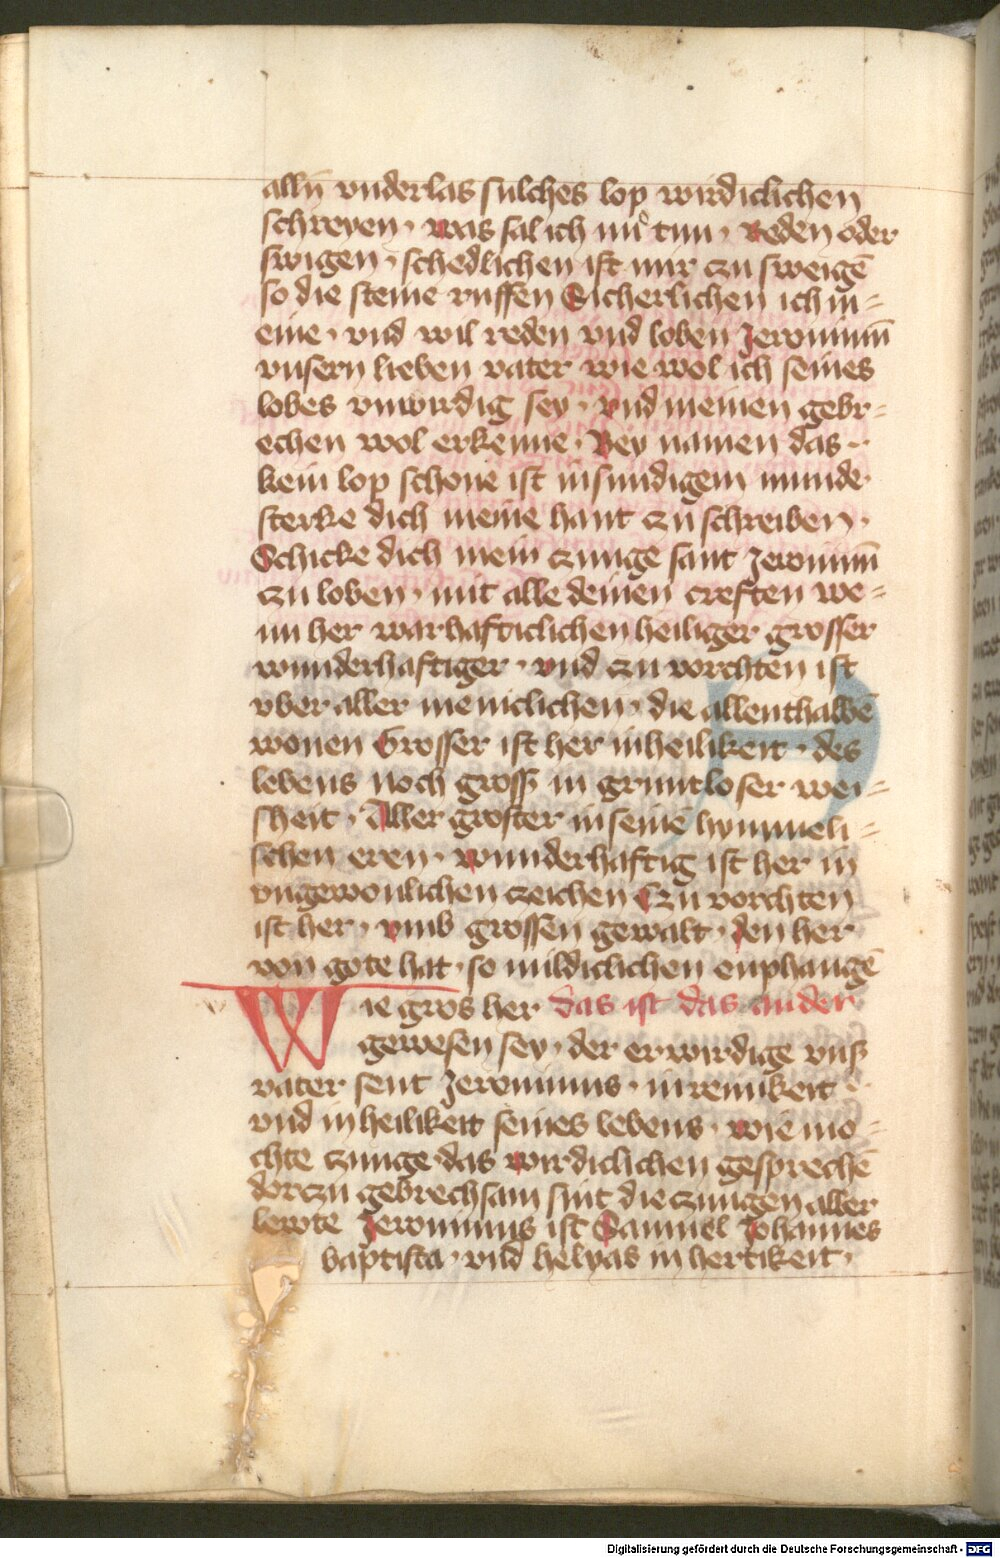 allū vnderlas sulches lop wirdiclichen
schreyen · was sal ich nu tun · Reden oder
swigen · schedlichen ist mir czu sweigē
so die steine ruffen Sicherlichen ich m-
eine · vnd wil reden vnd loben Jeronimū
vnsern lieben vater wie wol ich seines
lobes vnwirdig sey · vnd meinen gebr-
echen wol erkenne · Bey namen das
kein lop schone ist in sundigem munde ·
sterke dich meine hant czu schreiben ·
Schicke dich mein czunge sant Jeronimū
czu loben · mit alle deinen creften we-
nn her warhafticlichen heiliger grosser
wunderhaftiger · vnd czu vorchten ist
vber aller meniclichen · die allenthalbē
wonen Grosser ist her in heilikeit · des
lebens noch gross in gruntloser wei-
sheit · Aller groster in seinē hymmeli-
schen eren · wunderhaftig ist her in
vngewonlichen czeichen Czu vorchten
ist her · vmb grossen gewalt · den her
von gote hat · so mildiclichen enphangē
Wie gros her das ist das ander
gewesen sey · der erwirdige vnß
vater sent Jeronimus · in renikeit
vnd in heilikeit seines lebens · wie mo-
chte czunge das wirdiclichen gesprechē
dorczu gebrechsam sint die czungen aller
lewte Jeronimus ist Samuel Johannes
baptista · vnd helyas in hertikeit ·
Digitalisierung gefördert durch die Deutsche Forschungsgemeinschaft - DFG